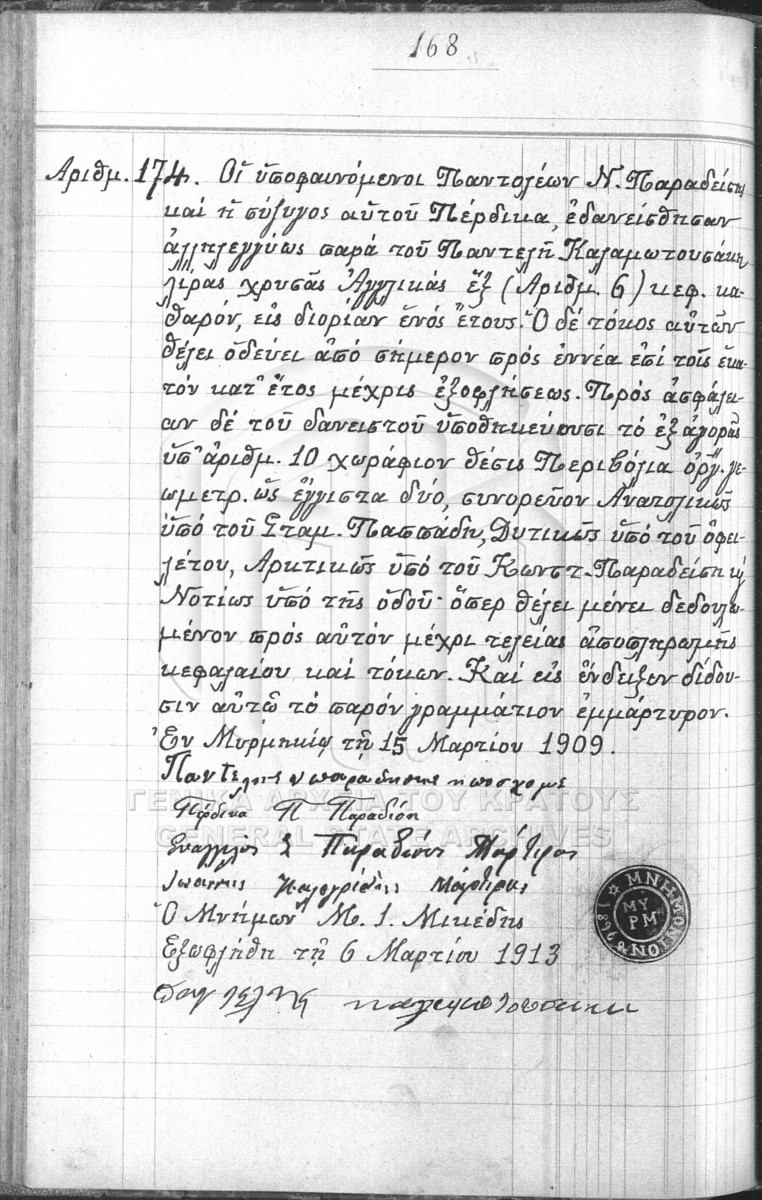 168
Αριθμ. 174. Οἱ ὑποφαινόμενοι Παντολέων Ν. Παραδείσης
καί ἡ σύζυγος αὐτοῦ Πέρδικα, ἐδανείσθησαν
ἀλληλεγγύως παρά τοῦ Παντελῆ Καλαμωτουσάκη
λίρας χρυσᾶς Ἀγγλικάς ἕξ (Αριθμ. 6) κεφ. κα-
θαρόν, εἰς διορίαν ἑνός ἔτους. Ὁ δέ τόκος αὐτῶν
θέλει ὁδεύει ἀπό σήμερον πρός ἐννέα ἐπί τοῖς ἑκα-
τόν κατ' ἔτος μέχρις ἐξοφλήσεως. Πρός ἀσφάλει-
αν δέ τοῦ δανειστοῦ ὑποθηκεύουσι τό ἐξ ἀγορᾶς
ὑπ' ἀριθμ. 10 χωράφιον θέσις Περιβόλια ὀργ. γε-
ωμετρ. ὡς ἔγγιστα δύο, συνορεῦον Ανατολικῶς
ὑπό τοῦ Σταμ. Παππάδη, Δυτικῶς ὑπό τοῦ ὀφει-
λέτου, Αρκτικῶς ὑπό τοῦ Κωνστ. Παραδείση κ
Νοτίως ὑπό τῆς ὁδοῦ· ὅπερ θέλει μένει δεδουλω-
μένον πρός αὐτόν μέχρι τελείας ἀποπληρωμῆς
κεφαλαίου καί τόκων. Καί εἰς ἔνδειξιν δίδου-
σιν αὐτῷ τό παρόν γραμμάτιον ἐμμάρτυρον.
Ἐν Μυρμηκίῳ τῇ 15 Μαρτίου 1909.
Παντελης ν παραδησης ηποσχομε
Περδικα Π Παραδιση
Ευαγγελος Σ Παραδισης Μαρτιρας
Ιωαννης Καλογρίδης Μάρτιρας
Ὁ Μνήμων Μ. Ι. Μικέδης
Εξωφλήθη τῇ 6 Μαρτίου 1913
Παντελης καλαμωτουσακη
ΜΝΗΜΟΝΙΟΝ 1898
ΜΥ
ΡΜ
ΓΕΝΙΚΑ ΑΡΧΕΙΑ ΤΟΥ ΚΡΑΤΟΥΣ
GENERAL STATE ARCHIVES